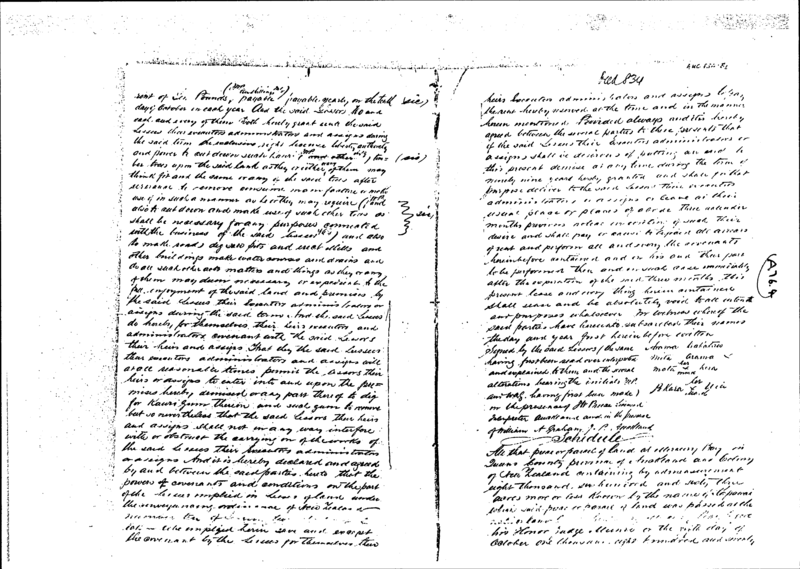 rent of Six Pounds, payable payable yearly on the 
day of October in each year And the said Lessors do and
each and every of them doth hereby grant unto the said
Lessees their executors administrators and assigns during
the said term the exclusive right licence liberty authority
and power to cut down such kauri and other trees (sic)
trees upon the said land as they or either of them may
think fit and the same or any of the said trees after
severance to remove consume manufacture or make
use of in such a manner as he or they may require
also to cut down and make use of such other trees as
shall be necessary for any purposes connected
with the business of the said Lessees and also
to make roads dig saw pits and erect mills and
other buildings make water courses and drains and
do all such other acts matters and things as they or any
of them may deem necessary or expedient to the
enjoyment of the said land and premises by
the said Lessees their Executors administrators or
assigns during the said term. And the said Lessees
do hereby for themselves, their heirs executors, and
administrators covenant with the said Lessors
their heirs and assigns That they the said Lessees
their executors administrators and assigns will
at all reasonable times permit the Lessors their
heirs or assigns to enter into and upon the pre-
mises hereby demised or any part thereof to dig
for Kauri Gum thereon and such gum to remove
but so nevertheless that the said Lessors their heirs
and assigns shall not in any way interfere
with or obstruct the carrying on of the works of
the said Lessees their executors administrators
or assigns And it is hereby declared and agreed
by and between the said parties hereto that the
powers of covenants and conditions on the part
of the Lessees implied in Leases of land under
the conveyancing ordinance of New Zealand
implied herein save and except
the covenant by the Lessees for themselves their
Deed 834
heirs Executors administrators and assigns to pay
the rent hereby reserved at the time and in the manner
herein mentioned Provided always and it is hereby
agreed between the several parties to these presents that
if the said Lessees their Executors administrators or
assigns shall be desirous of putting an end to
this present demise at any time during the term of
ninety nine years hereby granted and shall for that
purpose deliver to the said Lessors their executors
administrators or assigns or leave at their
usual place or places of abode three calendar
months previous notice in writing of such their
desire and shall pay or cause to be paid all arrears
of rent and perform all and every the covenants
hereinbefore contained and on his and their part
to be performed then and in such case immediately
after the expiration of the said three months this
present lease and every thing herein contained
shall cease and be absolutely void to all intents
and purposes whatsoever In witness whereof the
said parties have hereunto subscribed their names
the day and year first herein before written
Signed by the said Lessors (the same
having first been read over interpreted
and explained to them and the several
alterations bearing the initials
having first been made)
in the presence of
Interpreter Auckland and in the presence
of William A Graham J.P. Auckland
Schedule
All that piece or parcel of land at Mercury Bay in
Queens County province of Auckland and Colony
of New Zealand containing by admeasurement
eight thousand six hundred and sixty three
acres more or less known by the name of
which said piece or parcel of land was passed at the
his Honor Judge Munro on the sixth day of
October one thousand eight hundred and seventy
A769